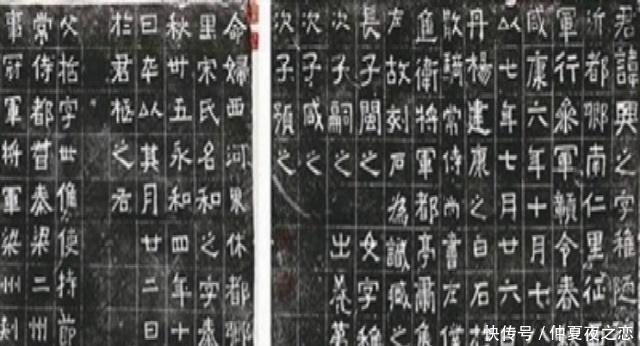 君諱興之字稚陋
沂都鄉南仁里征
軍行參軍贛令春
咸康六年十月十
以七年七月廿六
丹楊建康之白石
散騎常侍尚書左僕
進衛將軍都亭肅侯
左故刻石為識臧之
長子閩之 女字稚
次子嗣之 出養第
次子咸之
次子預之
命婦西河界休都鄉
里宋氏名和之字秦
秋卅五永和四年十
日卒以其月廿二日
於君柩之右
父哲字世儁使持節
常侍都督秦梁二州
事冠軍將軍梁州刺
快传号/仲夏夜之恋